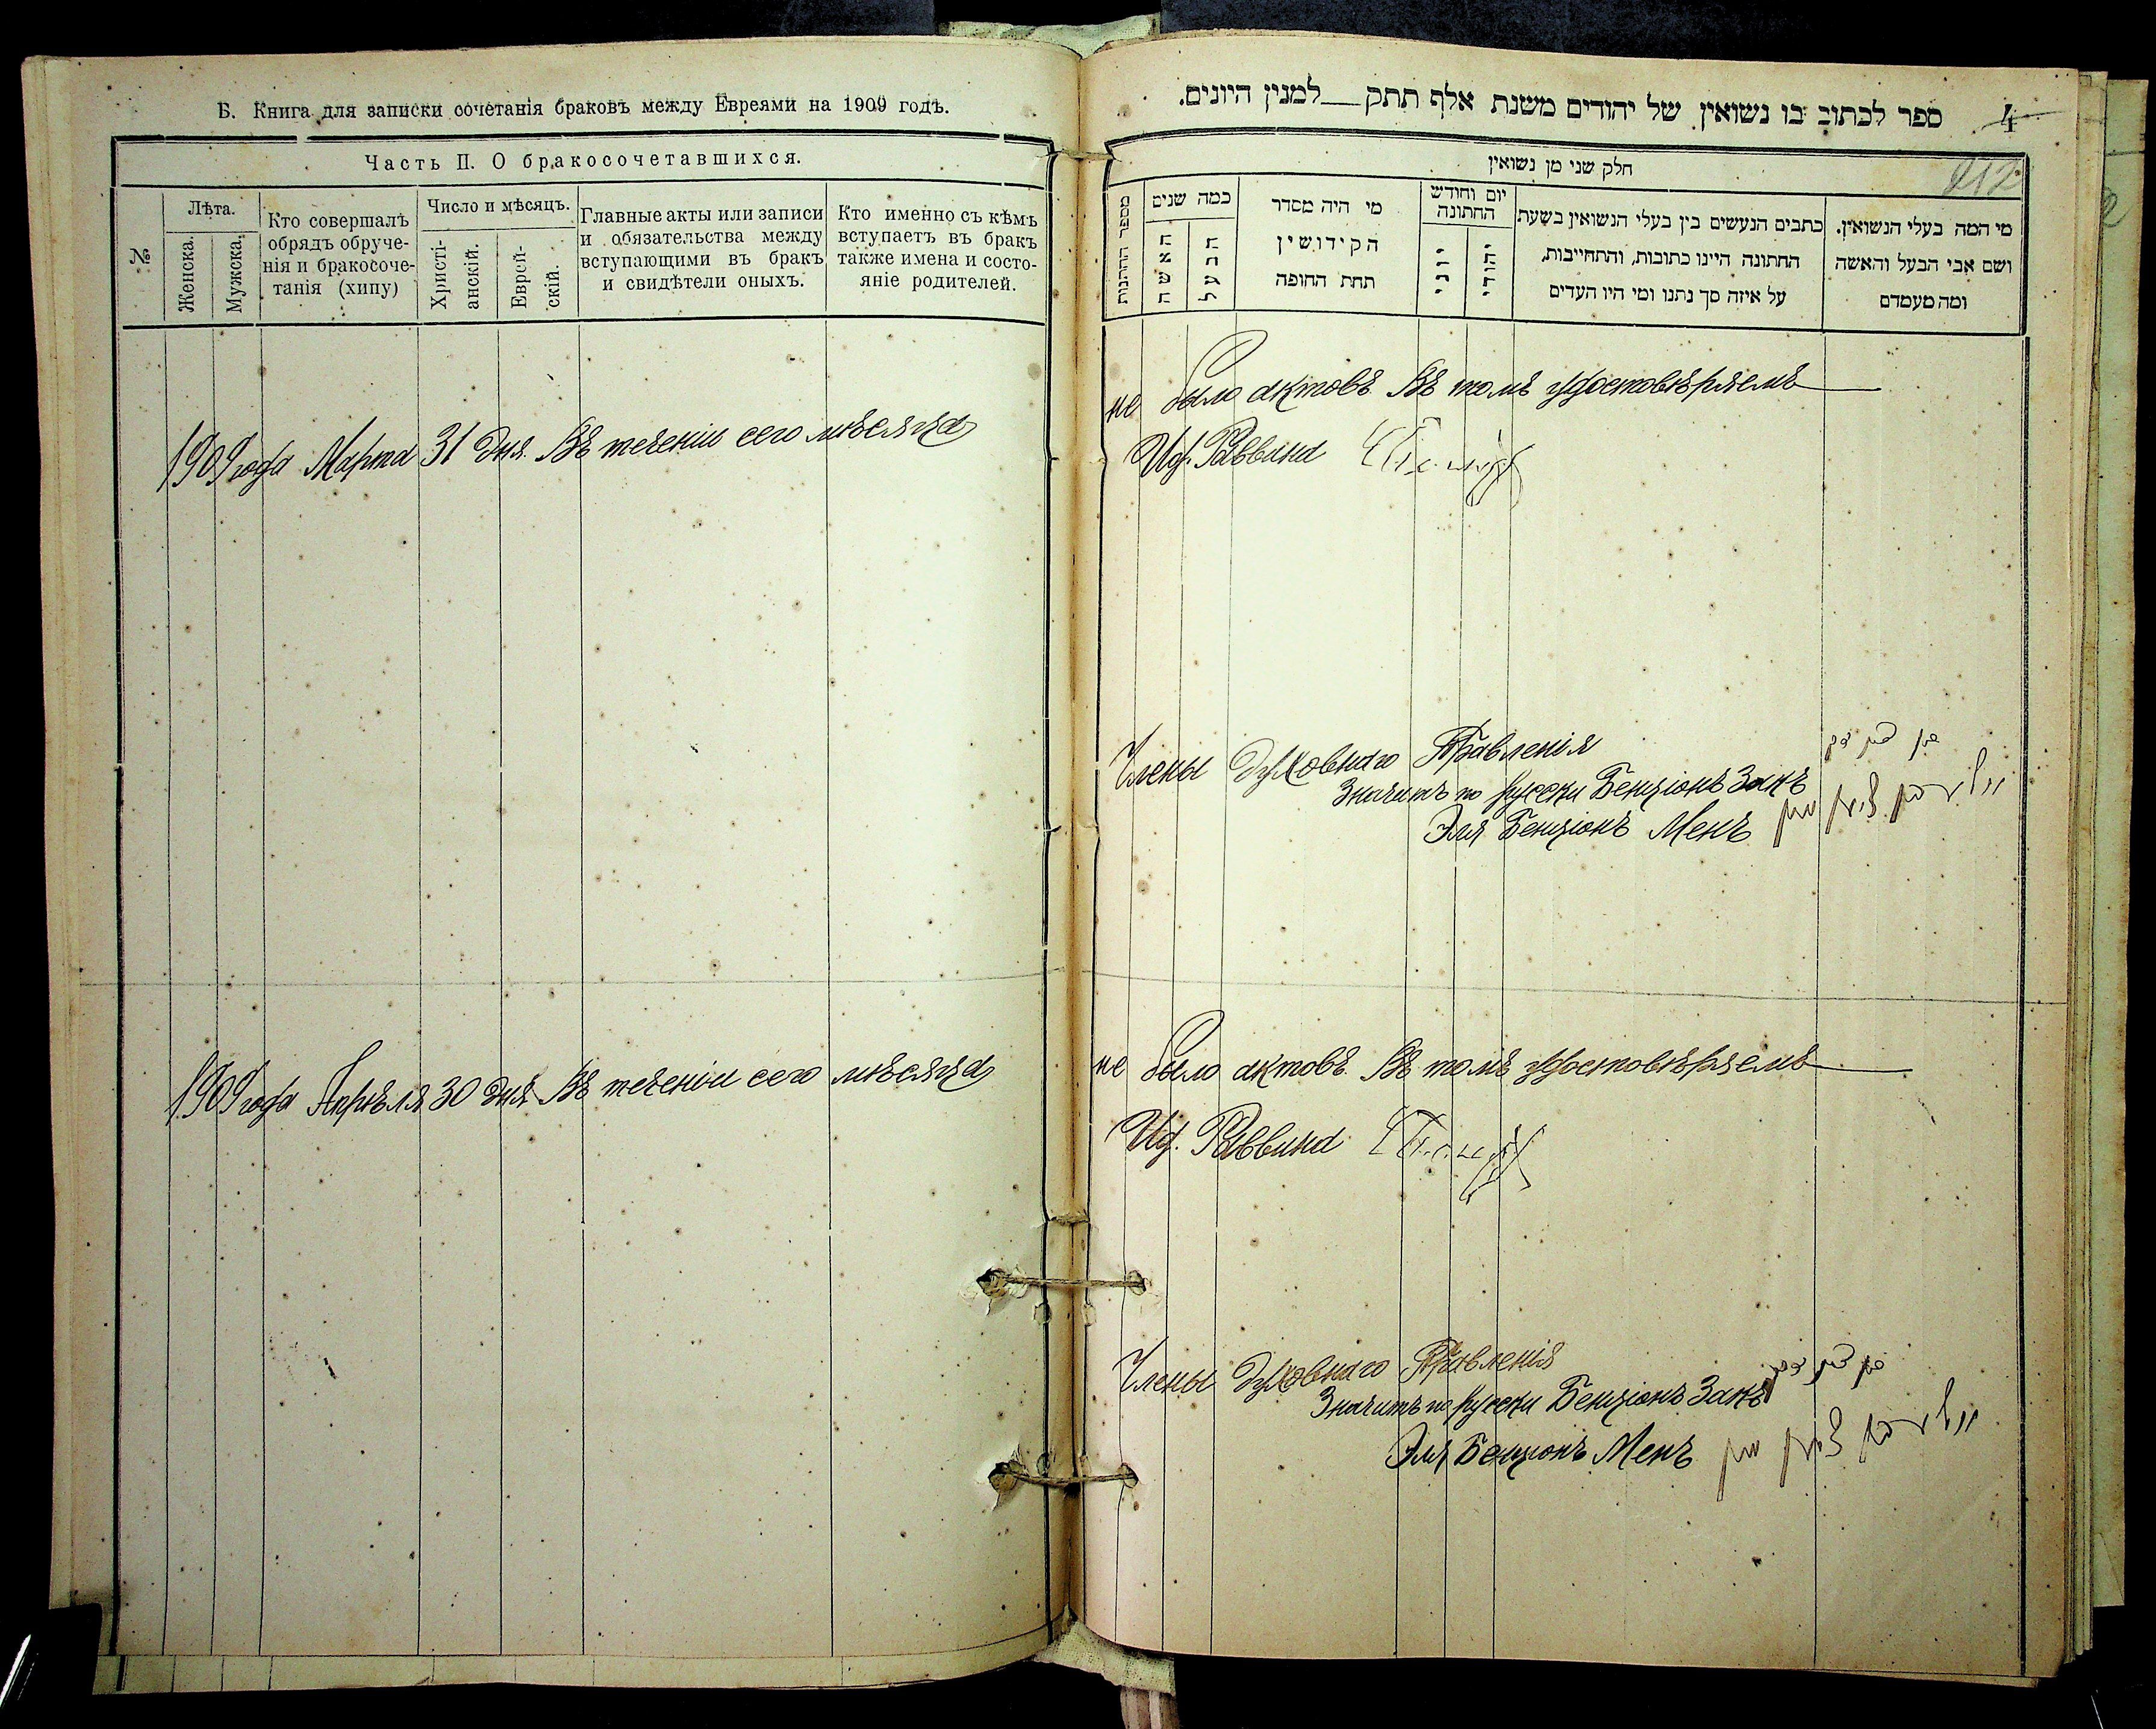 Б. Книга для записки сочетанія браковъ между Евреями на 1909 годъ.
Часть II. О бракосочетавшихся.
№
Лѣта.
Женска.
Мужска.
Кто совершалъ
обрядъ обруче-
нія и бракосоче-
танія (хипу)
Число и мѣсяцъ.
Христі-
анскій.
Еврей-
скій.
Главные акты или записи
и обязательства между
вступающими въ бракъ
и свидѣтели оныхъ.
Кто именно съ кѣмъ
вступаетъ въ бракъ
также имена и состо-
яніе родителей.
1909 года Марта 31 дня. Въ теченіи сего мѣсяца
1909 года Апрѣля 30 дня. Въ теченіи сего мѣсяца
ספר לכתוב בו נשואין של יהודים משנת אלף תתק למנין היונים.
4
212
חלק שני מן נשואין
מי המה בעלי הנשואין.
ושם אבי הבעל והאשה
ומה מעמדם
כתבים הנעשים בין בעלי הנשואין בשעת
החתונה היינו כתובות, והתחייבות,
על איזה סך נתנו ומי היו העדים
יום וחודש
החתונה
יהודי
יוני
מי היה מסדר
הקידושין
תחת החופה
כמה שנים
הבעל
האשה
מספר החתונות
не было актовъ. Въ томъ удостовѣряемъ
Ид. Раввина
Члены Духовнаго Правленія
Значитъ по русски Бенціонъ Закъ
Эля Бенціонъ Менъ
не было актовъ. Въ томъ удостовѣряемъ
Ид. Раввина
Члены Духовнаго Правленія
Значитъ по русски Бенціонъ Закъ
Эля Бенціонъ Менъ